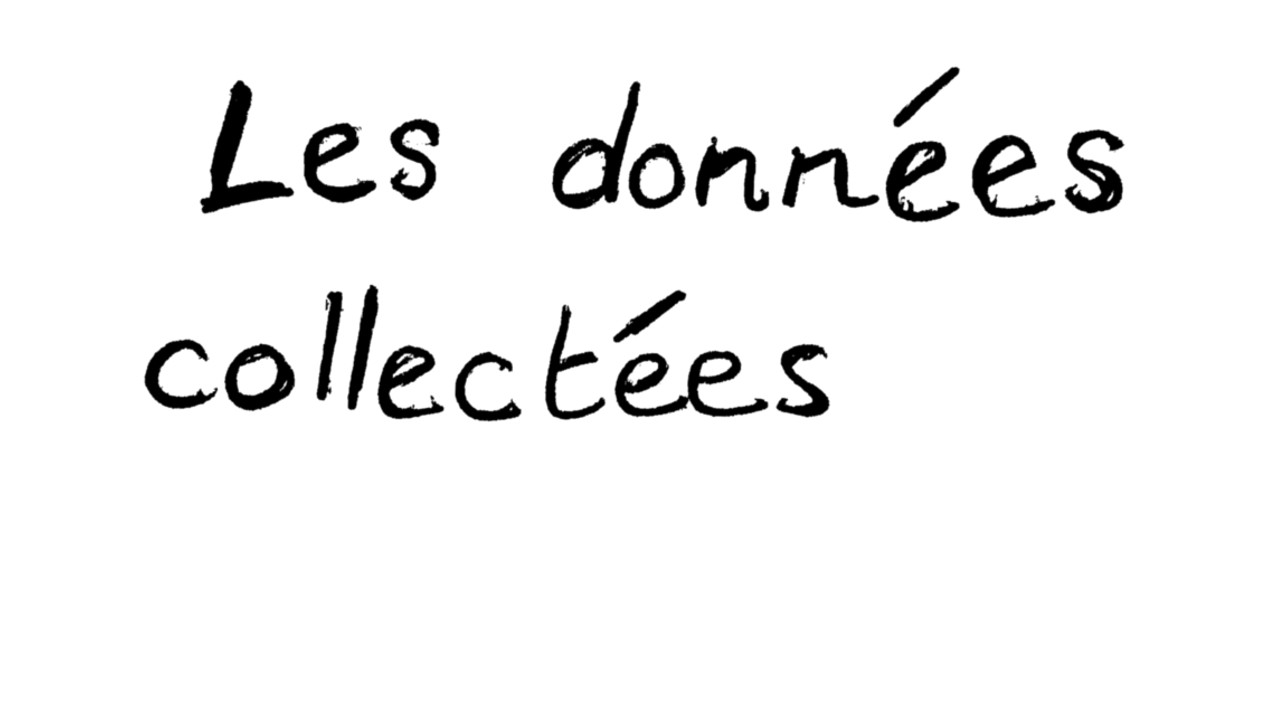 Les données
collectées